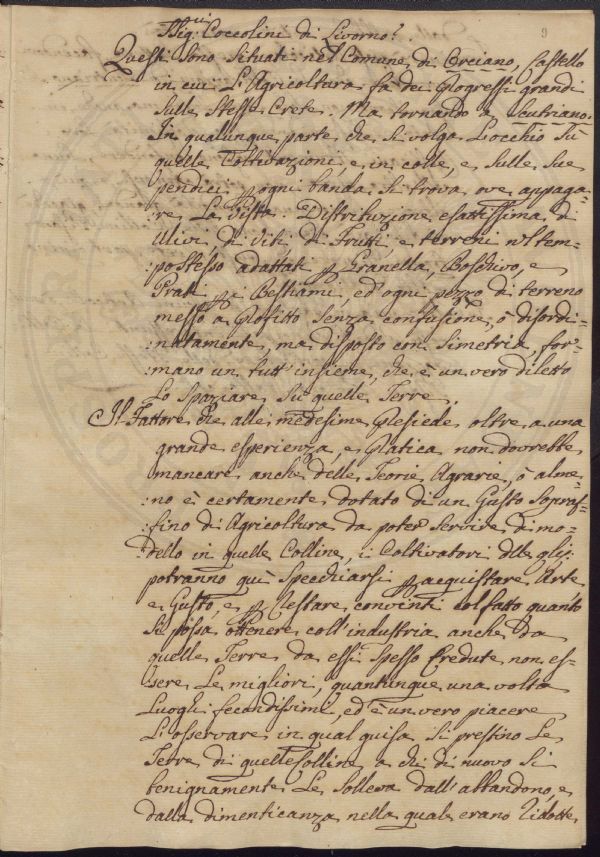 9
Sig.ri Coccolini di Livorno.
Questi sono situati nel Comune di Orciano, Castello
in cui l'Agricoltura fà dei Progressi grandi
sulle stesse Crete. Ma tornando a Scutriano.
In qualunque parte che si volga l'occhio sù
quelle Coltivazioni, e in colle, e sulle sue
pendici, p ogni banda si trova ove appaga-
:re La Vista. Distribuzione esattissima di
Ulivi, di Viti, di Frutti, e terreni nel tem-
:po stesso adattati p Granella, Boschivo, e
Prati p i Bestiami, ed' ogni pezzo di terreno
messo a Profitto senza confusione, ò disordi-
:natamente, ma disposto con simetria, for-
:mano un tutt' insieme, che è un vero diletto
Lo spaziare sù quelle Terre.
Il Fattore che alle medesime Presiede oltre a una
grande esperienza, e Pratica non dovrebbe
mancare anche delle Teorie Agrarie, ò alme-
:no è certamente dotato di un Gusto sopraf-
:fino di Agricoltura da poter servire di mo-
:dello in quelle Colline, i Coltivatori delle qli
potranno quì specchiarsi p acquistare Arte
e Gusto, e p Restare convinti col fatto quanto
si possa ottenere coll' industria anche da
quelle Terre da essi spesso Credute non es-
:sere Le migliori, quantunque una volta
Luoghi fecondissimi, ed' è un vero piacere
L'osservare in qual guisa si prestino Le
Terre di quelle Colline a chi di nuovo si
benignamente Le solleva dall' abbandono, e
dalla dimenticanza nella quale erano Ridotte